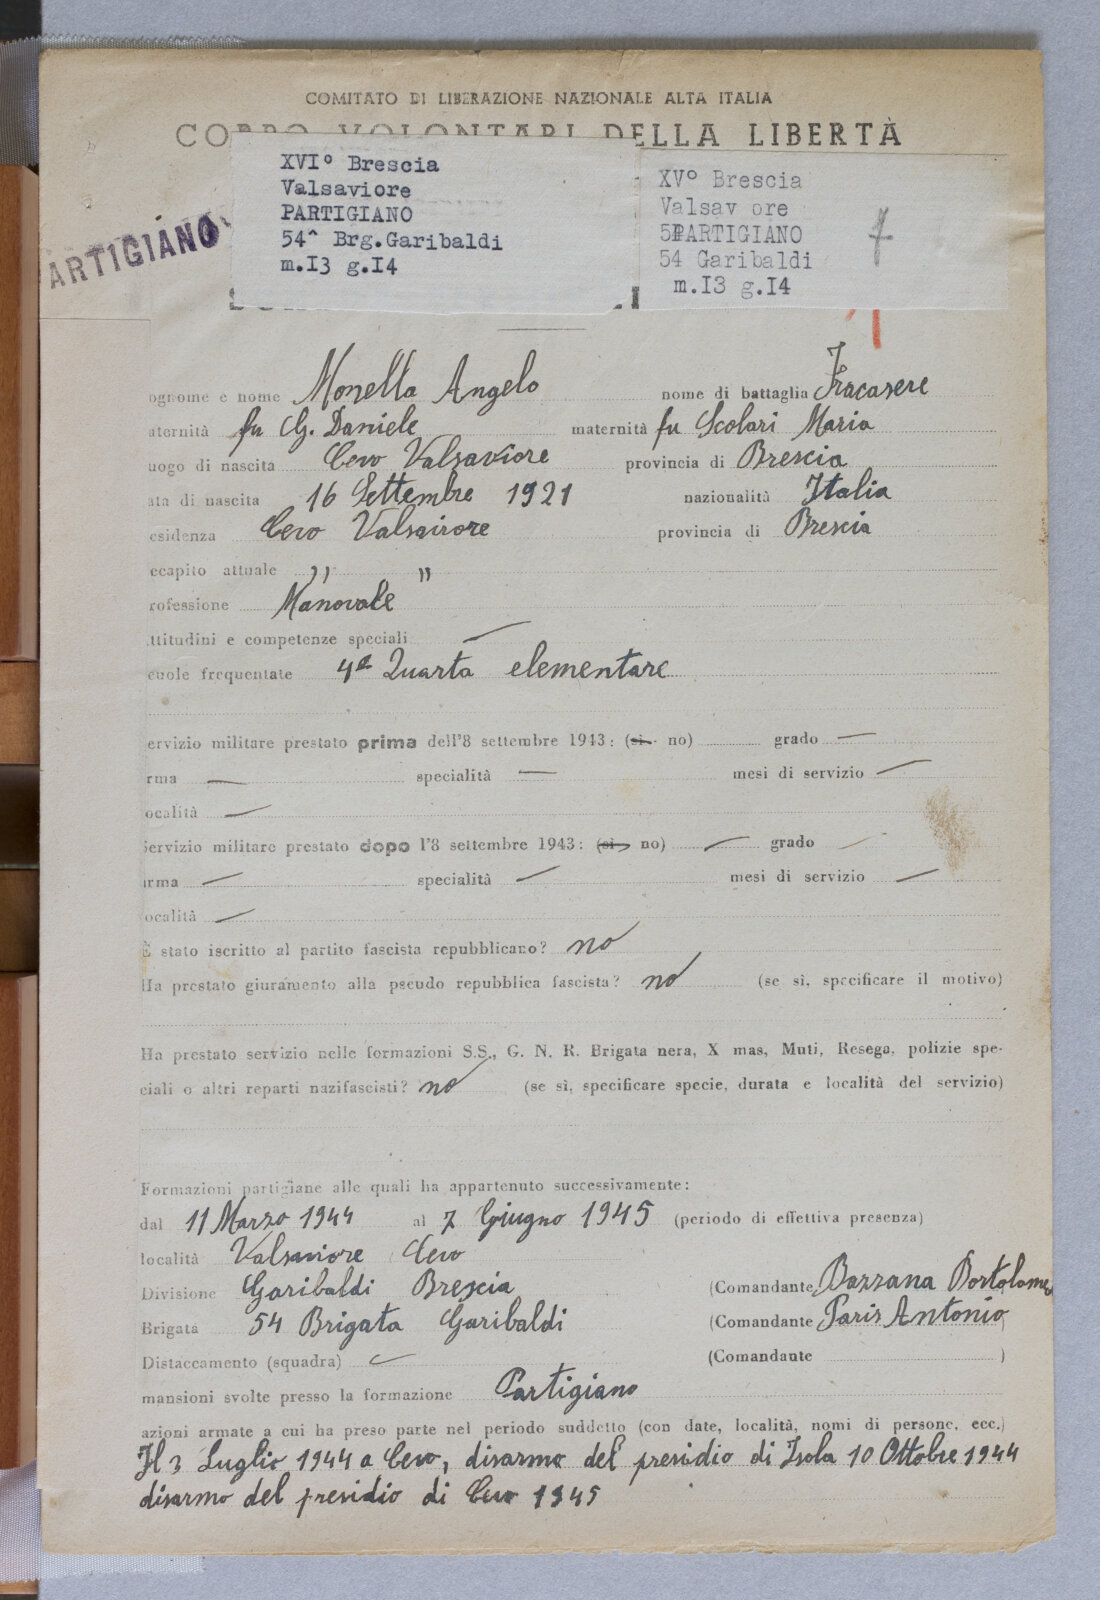 COMITATO DI LIBERAZIONE NAZIONALE ALTA ITALIA
CORPO VOLONTARI DELLA LIBERTÀ
XVI° Brescia
Valsaviore
PARTIGIANO
54^ Brg.Garibaldi
m.I3 g.I4
XV° Brescia
Valsav ore
PARTIGIANO
54 Garibaldi
m.I3 g.I4
ARTIGIANO
ognome e nome Monella Angelo nome di battaglia Fracasere
aternità fu G. Daniele maternità fu Scolari Maria
uogo di nascita Cevo Valsaviore provincia di Brescia
ata di nascita 16 Settembre 1921 nazionalità Italia
esidenza Cevo Valsaviore provincia di Brescia
ecapito attuale " "
rofessione Manovale
ttitudini e competenze speciali —
cuole frequentate 4a Quarta elementare
ervizio militare prestato prima dell'8 settembre 1943: (sì - no) grado —
rma — specialità — mesi di servizio —
ocalità —
Servizio militare prestato dopo l'8 settembre 1943: (sì - no) — grado —
arma — specialità — mesi di servizio —
località —
È stato iscritto al partito fascista repubblicano? no
Ha prestato giuramento alla pseudo repubblica fascista? no (se sì, specificare il motivo)
Ha prestato servizio nelle formazioni S.S., G. N. R. Brigata nera, X mas, Muti, Resega, polizie spe-
ciali o altri reparti nazifascisti? no (se sì, specificare specie, durata e località del servizio)
Formazioni partigiane alle quali ha appartenuto successivamente:
dal 11 Marzo 1944 al 7 Giugno 1945 (periodo di effettiva presenza)
località Valsaviore Cevo
Divisione Garibaldi Brescia (Comandante Bazzana Bortolame
Brigata 54 Brigata Garibaldi (Comandante Paris Antonio
Distaccamento (squadra) — (Comandante )
mansioni svolte presso la formazione Partigiano
azioni armate a cui ha preso parte nel periodo suddetto (con date, località, nomi di persone, ecc.)
Il 3 Luglio 1944 a Cevo, disarmo del presidio di Isola 10 Ottobre 1944
disarmo del presidio di Cevo 1945